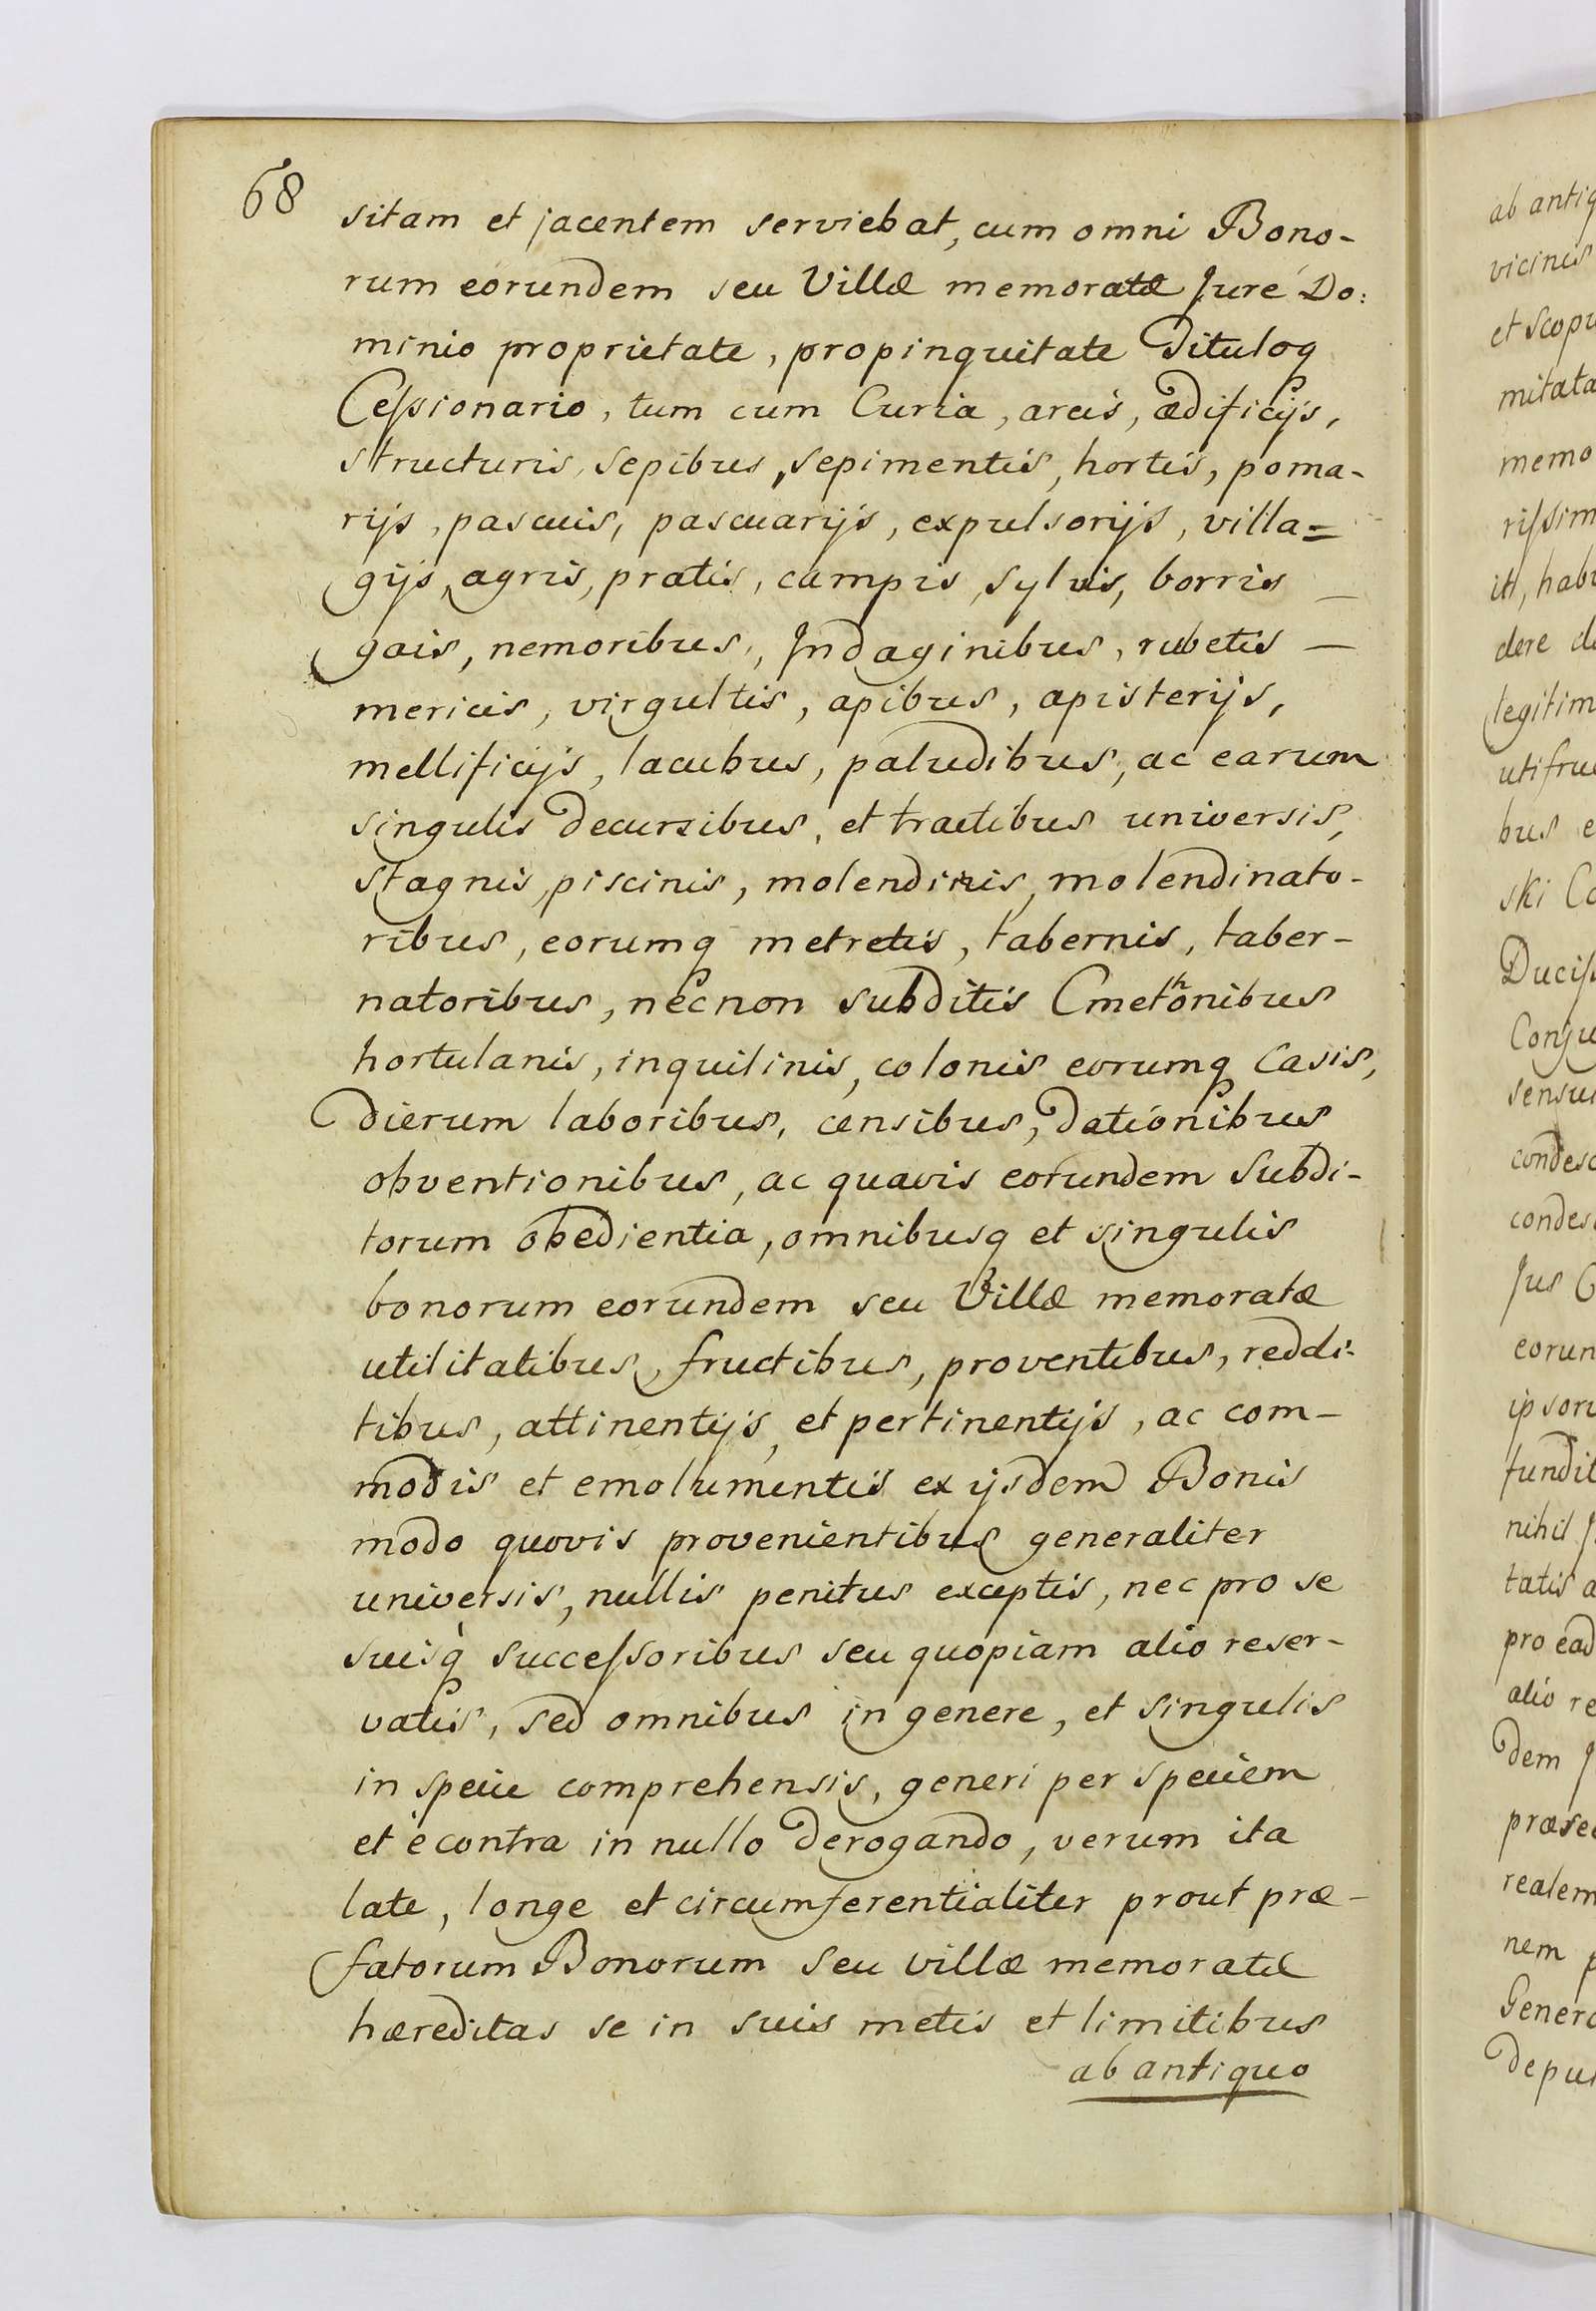 68
sitam et jacentem serviebat, cum omni Bono-
rum eorundem seu Villæ memoratæ Jure Do:
minio proprietate, propinquitate Tituloq
Ceſsionario, tum cum Curia, areis, ædificijs,
structuris, sepibus, sepimentis, hortis, poma-
rijs, pascuis, pascuarijs, expulsorijs, villa=
gijs, agris, pratis, campis, sylvis, borris —
gais, nemoribus, Indaginibus, rubetis —
mericis, virgultis, apibus, apisterijs,
mellificijs, lacubus, paludibus, ac earum
singulis decursibus, et tractibus universis,
stagnis, piscinis, molendinis, molendinato-
ribus, eorumq metretis, tabernis, taber-
natoribus, necnon subditis Cmethonibus
hortulanis, inquilinis, colonis eorumq Casis,
dierum laboribus, censibus, dationibus
obventionibus, ac quavis eorundem Subdi-
torum obedientia, omnibusq et singulis
bonorum eorundem seu Villæ memoratæ
utilitatibus, fructibus, proventibus, reddi-
tibus, attinentijs, et pertinentijs, ac com-
modis et emolumentis ex ijsdem Bonis
modo quovis provenientibus generaliter
universis, nullis penitus exceptis, nec pro se
suisq̀ succeſsoribus seu quopiam alio reser-
vatis, sed omnibus in genere, et singulis
in specie comprehensis, generi per speciem
et è contra in nullo derogando, verum ita
late, longe et circumferentialiter prout præ-
fatorum Bonorum seu villæ memoratæ
hæreditas se in suis metis et limitibus
ab antiquo
ab antiq
vicinis
et scopu
mitata
memo
riſsim
iti, habi
dere d
legitim
utifru
bus e
ski Co
Duciſ
Conju
sensu
condes
condes
Jus
eorun
ipsoru
fundit
nihil J
tatis a
pro ead
alio re
dem J
præse
realem
nem p
Genera
depu